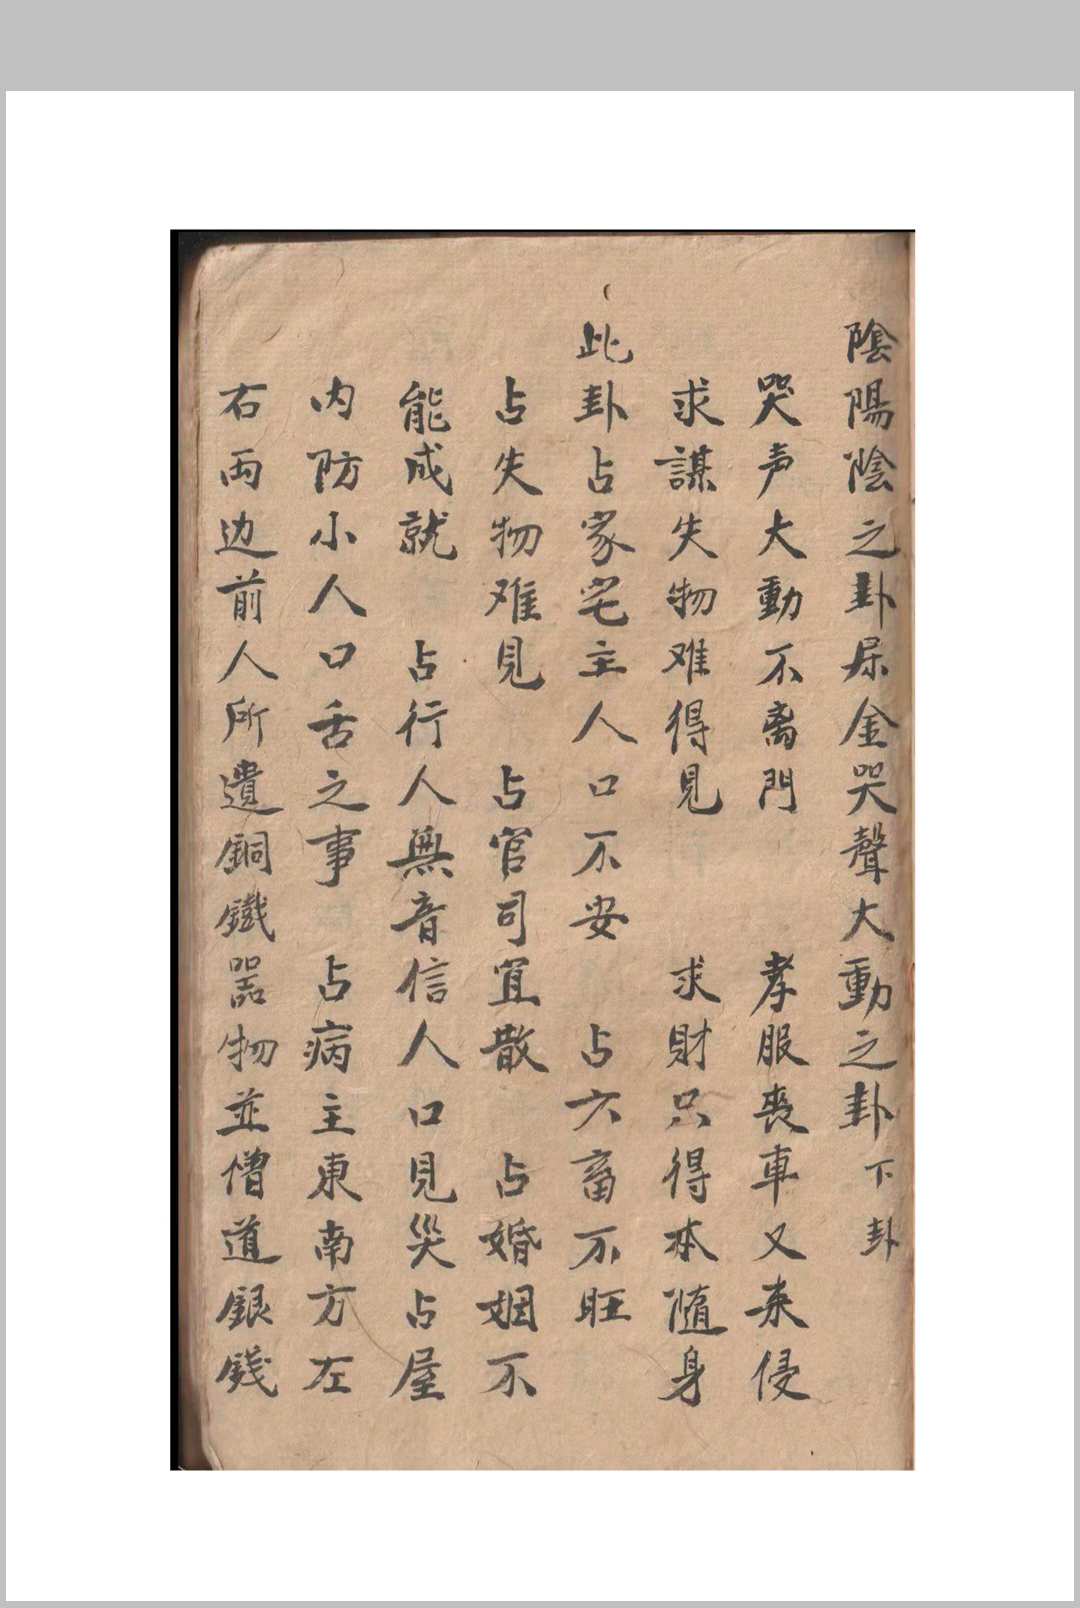 陰陽陰之卦屎金哭聲大動之卦下卦
哭声大動不离門 孝服喪車又来侵
求謀失物难得見 求財只得本隨身
此卦占家宅主人口不安 占六畜不旺
占失物难見 占官司宜散 占婚姻不
能成就 占行人無音信人口見災占屋
内防小人口舌之事 占病主東南方左
右两边前人所遺銅鐵器物並僧道銀錢